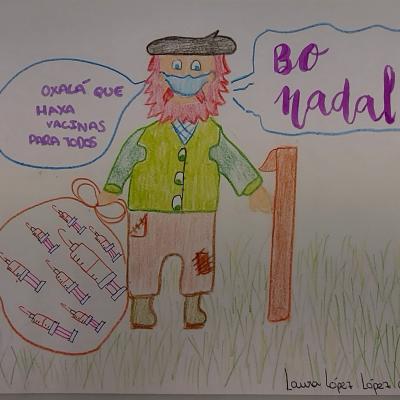 OXALÁ QUE
HAXA
VACINAS
PARA TODOS
BO
Nadal
Laura López López